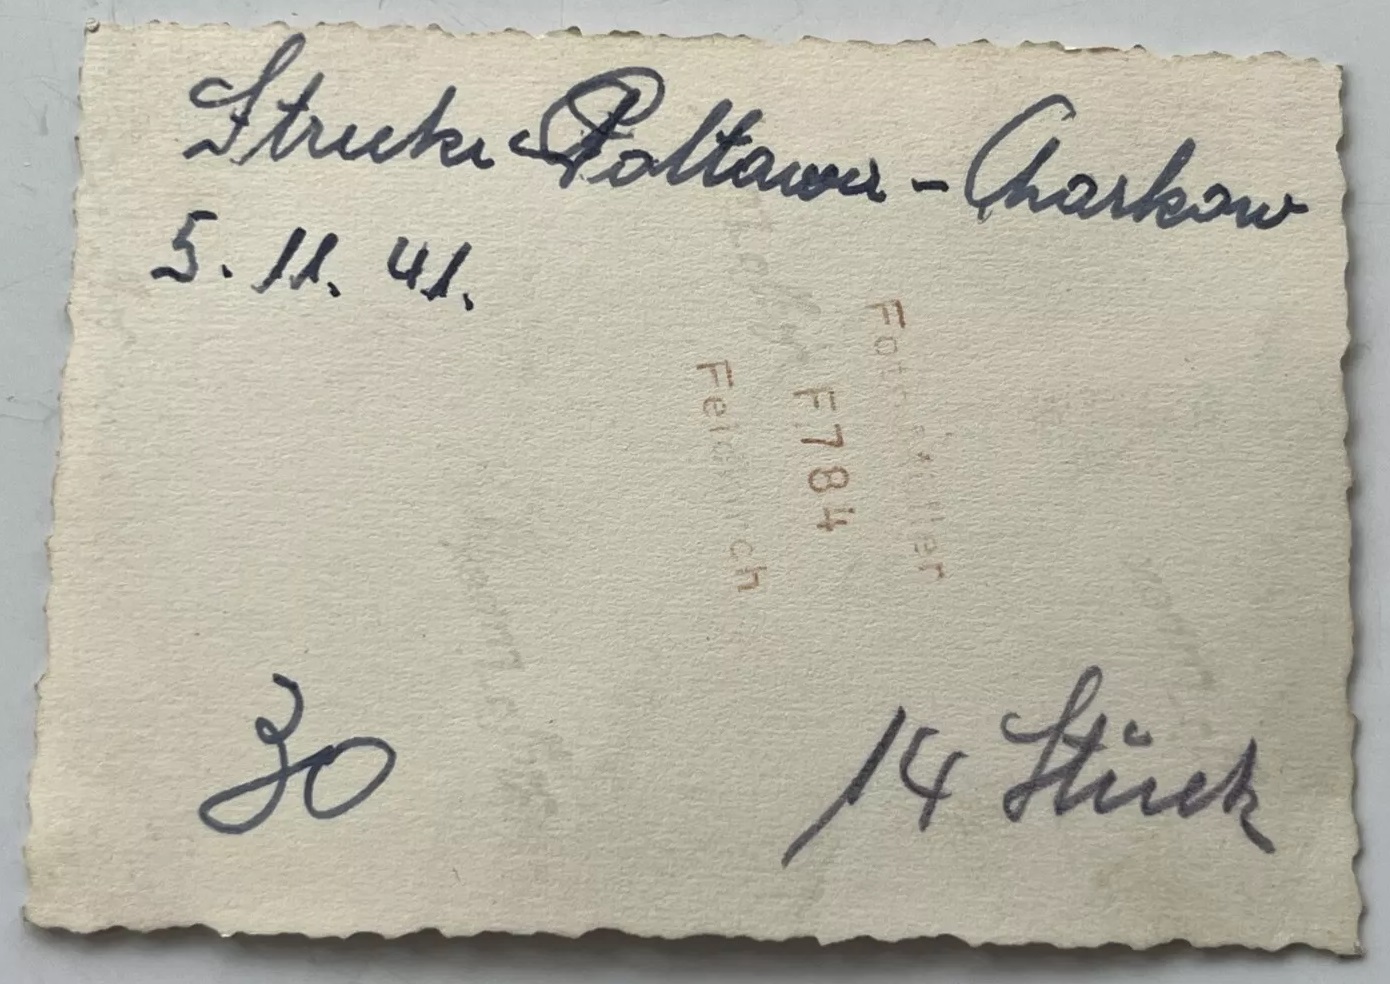 Strecke Poltawa - Charkow
5. 11. 41.
Foto Müller
F784
Feldkirch
30
14 Stück